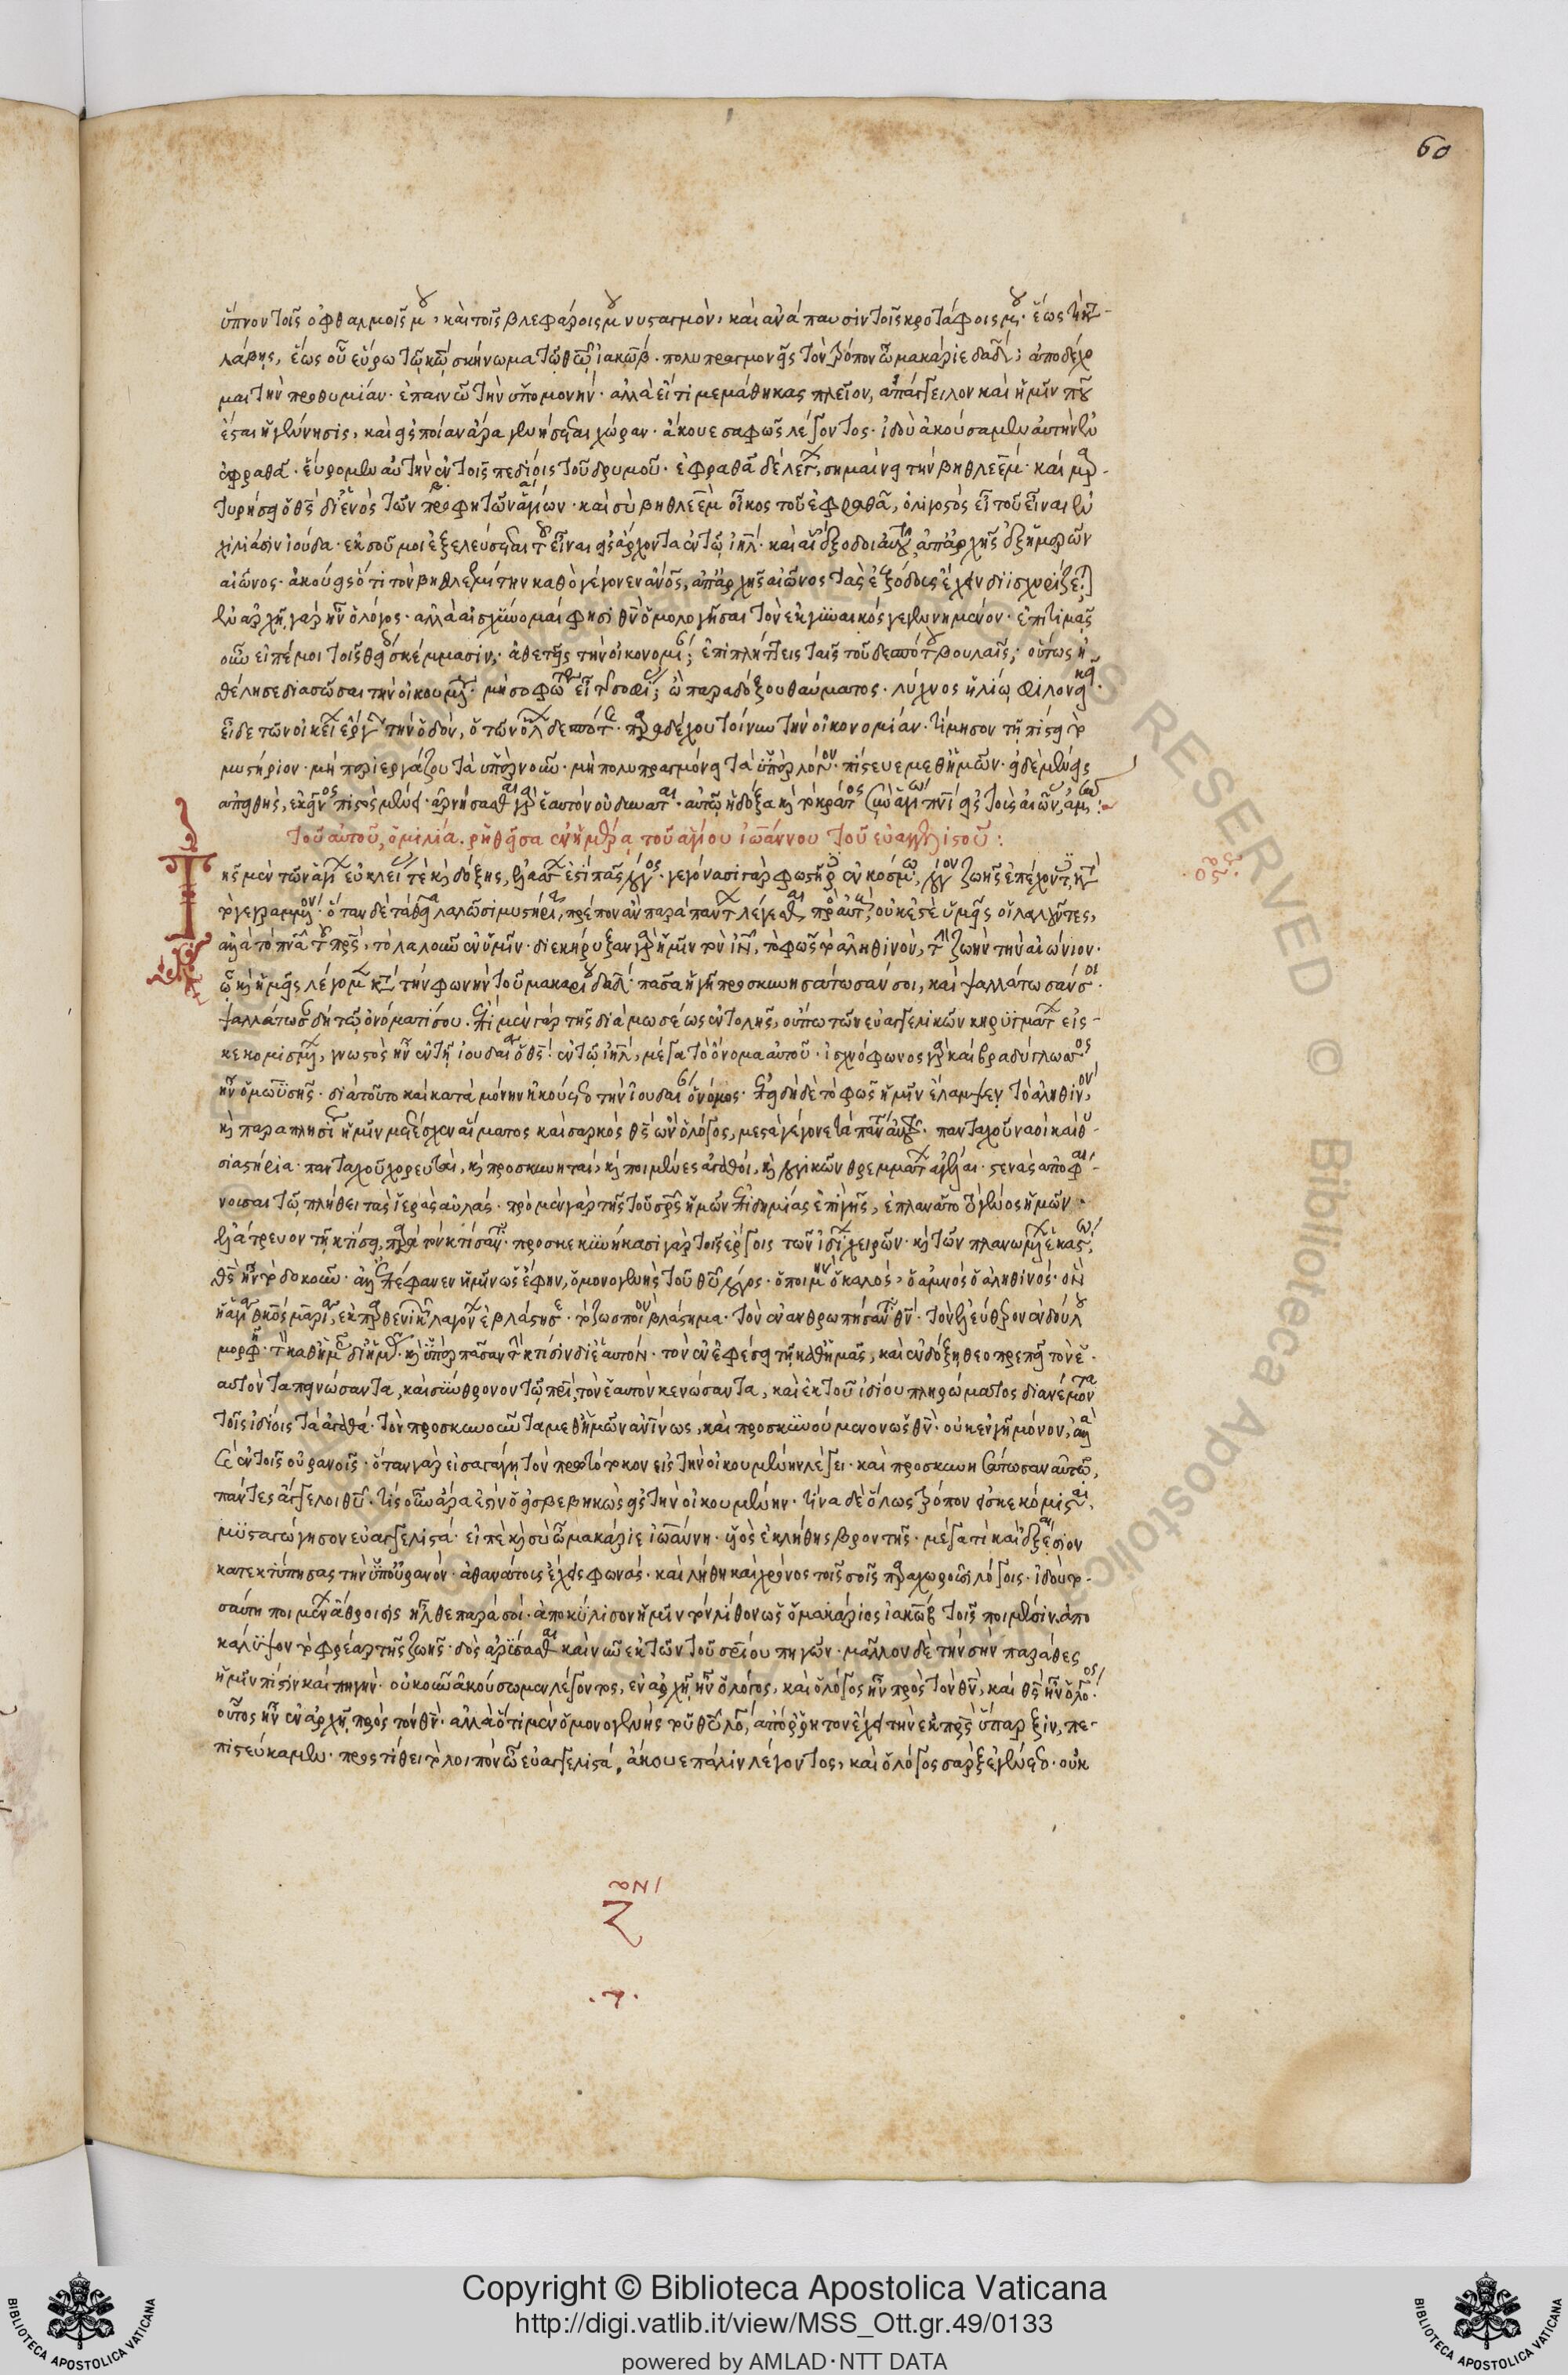 60
ὕπνον τοῖς ὀφθαλμοῖς μου, καὶ τοῖς βλεφάροις μου νυσταγμὸν, καὶ ἀνάπαυσιν τοῖς κροτάφοις μου· ἕως
ἕως οὗ εὕρω τῷ κῷ σκήνωμα τῷ θῷ ἰακώβ· πολυπραγμονεῖς τὸν τρόπον ὦ μακάριε δαδ; ἀποδέχο
μαι τὴν προθυμίαν· ἐπαινῶ τὴν ὑπομονήν· ἀλλὰ εἴ τι μεμάθηκας πλεῖον, ἀπάγγειλον καὶ ἡμῖν ποῦ
ἔσται ἡ γέννησις, καὶ εἰς ποίαν ἄρα γεννήσεται χώραν· ἄκουε σαφῶς λέγοντος· ἰδοὺ ἠκούσαμεν αὐτὴν ἐν
ἐφραθᾶ· εὕρομεν αὐτὴν ἐν τοῖς πεδίοις τοῦ δρυμοῦ· ἐφραθᾶ δὲ λέγει, σημαίνει τὴν βηθλεέμ· καὶ μαρ-
τυρήσει ὁ θς δι' ἑνὸς τῶν προφητῶν ἁγίων· καὶ σὺ βηθλεὲμ οἶκος τοῦ ἐφραθᾶ, ὀλιγοστὸς εἶ τοῦ εἶναι ἐν
χιλιάσιν ἰούδα· ἐκ σοῦ μοι ἐξελεύσεται τοῦ εἶναι εἰς ἄρχοντα ἐν τῷ ιηλ· καὶ αἱ ἔξοδοι αὐτοῦ ἀπ' ἀρχῆς ἐξ ἡμερῶν
αἰῶνος· ἀκούεις ὅτι τὸν βηθλεεμίτην καθὸ γέγονεν ανος, ἀπ' ἀρχῆς αἰῶνος τὰς ἐξόδους ἔχειν διϊσχυρίζεται
ἐν ἀρχῇ γὰρ ἦν ὁ λόγος· ἀλλὰ αἰσχύνομαί φησι θν ὁμολογῆσαι τὸν ἐκ γυναικὸς γεγεννημένον· ἐπιτιμᾷς
οὖν εἰπέ μοι τοῖς θυ σκέμμασιν· ἀθετεῖς τὴν οἰκονομίαν; ἐπιπλήττεις ταῖς τοῦ δεσπότου βουλαῖς; οὕτως ἠ
θέλησε διασῶσαι τὴν οἰκουμένην· μὴ σοφώτερος εἶ τῆς σοφίας; ὢ παραδόξου θαύματος· λύχνος ἡλίῳ φιλονεικεῖ·
προσδέχου τοίνυν τὴν οἰκονομίαν· τίμησον τῇ πίστει τὸ
μυστήριον· μὴ περιεργάζου τὰ ὑπὲρ νοῦν· μὴ πολυπραγμόνει τὰ ὑπὲρ λόγον· πίστευε μεθ' ἡμῶν· εἰ δὲ μένεις
ἀπειθὴς, ἐκεῖνος πιστὸς μένει· ἀρνήσασθαι γὰρ ἑαυτὸν οὐ δύναται· αὐτῷ ἡ δόξα καὶ τὸ κράτος σὺν ἁγίῳ πνι εἰς τοὺς αἰῶνας ἀμήν:
Τοῦ αὐτοῦ, ὁμιλία ῥηθεῖσα ἐν ἡμέρᾳ τοῦ ἁγίου ἰωάννου τοῦ εὐαγγελιστοῦ:
Τῆς μὲν τῶν ἁγίων εὐκλείας τὲ καὶ δόξης, ἐλάττων ἐστὶ πᾶς λόγος· γεγόνασι γὰρ φωστῆρες ἐν κόσμῳ, λόγον ζωῆς ἐπέχοντες κατὰ
τὸ γεγραμμένον· ὅταν δὲ τὰ θεῖα λαλῶσι μυστήρια, πρέπον ἂν παρὰ πάντων λέγεσθαι πρὸς αὐτούς, οὐκ ἐστὲ ὑμεῖς οἱ λαλοῦντες,
ἀλλὰ τὸ πνα τοῦ πρς, τὸ λαλοῦν ἐν ὑμῖν· διεκήρυξαν γὰρ ἡμῖν τὸν ιν, τὸ φῶς τὸ ἀληθινὸν, τὴν ζωὴν τὴν αἰώνιον·
ᾧ καὶ ἡμεῖς λέγομεν κατὰ τὴν φωνὴν τοῦ μακαρίου δαδ· πᾶσα ἡ γῆ προσκυνησάτωσάν σοι, καὶ ψαλλάτωσάν σοι·
ψαλλάτωσαν δὴ τῷ ὀνόματί σου. ἐπὶ μὲν γὰρ τῆς διὰ μωσέως ἐντολῆς, οὔπω τῶν εὐαγγελικῶν κηρυγμάτων εἰς-
κεκομισμένων, γνωστὸς ἦν ἐν τῇ ἰουδαίᾳ ὁ θς· ἐν τῷ ιηλ, μέγα τὸ ὄνομα αὐτοῦ· ἰσχνόφωνος γὰρ καὶ βραδύγλωσσος
ἦν ὁ μωϋσῆς· διὰ τοῦτο καὶ κατὰ μόνην ἠκούετο τὴν ἰουδαίαν ὁ νόμος· ἐπειδὴ δὲ τὸ φῶς ἡμῖν ἔλαμψεν τὸ ἀληθινὸν,
καὶ παραπλησίως ἡμῖν μετέσχεν αἵματος καὶ σαρκὸς θς ὢν ὁ λόγος, μεστὰ γέγονε τὰ πάντα αὐτοῦ· πανταχοῦ ναοὶ καὶ θυ-
σιαστήρια· πανταχοῦ χορευταὶ, καὶ προσκυνηταὶ, καὶ ποιμένες ἀγαθοὶ, καὶ λογικῶν θρεμμάτων ἀγέλαι·
νουσαι τῷ πλήθει τὰς ἱερὰς αὐλάς· πρὸ μὲν γὰρ τῆς τοῦ σρς ἡμῶν ἐπιδημίας ἐπὶ γῆς, ἐπλανᾶτο τὸ γένος ἡμῶν·
ἐλάτρευον τῇ κτίσει, παρὰ τὸν κτίσαντα· προσκεκυνήκασι γὰρ τοῖς ἔργοις τῶν ἰδίων χειρῶν· καὶ τῶν πλανωμένων ἑκάστῳ,
θς ἦν τὸ δοκοῦν· ἀλλ' ἐπέφανεν ἡμῖν ὡς ἔφην, ὁ μονογενὴς τοῦ θυ λόγος· ὁ ποιμὴν ὁ καλός, ὁ ἀμνὸς ὁ ἀληθινός· ὃν
ἡ ἁγία θκος μαρία, ἐκ παρθενικῶν λαγόνων ἐβλάστησε· τὸν ἐνανθρωπήσαντα θν· τὸν ἐλεύθερον ἐν δούλου
μορφῇ· τὸν καθ' ἡμᾶς δι' ἡμᾶς· καὶ ὑπὲρ πᾶσαν τὴν κτίσιν δι' ἑαυτόν· τὸν ἐν ἐφέσει τῇ καθ' ἡμᾶς, καὶ ἐν δόξῃ θεοπρεπεῖ· τὸν ἑ-
αυτὸν ταπεινώσαντα, καὶ σύνθρονον τῷ πρι, τὸν ἑαυτὸν κενώσαντα, καὶ ἐκ τοῦ ἰδίου πληρώματος διανέμοντα
τοῖς ἰδίοις τὰ ἀγαθά· τὸν προσκυνοῦντα μεθ' ἡμῶν ανινως, καὶ προσκυνούμενον ὡς θν· οὐκ ἐν γῇ μόνον, ἀλλὰ
καὶ ἐν τοῖς οὐρανοῖς· ὅταν γὰρ εἰσαγάγῃ τὸν πρωτότοκον εἰς τὴν οἰκουμένην λέγει· καὶ προσκυνησάτωσαν αὐτῷ,
πάντες ἄγγελοι θυ· τίς οὖν ἄρα ἐστὶν ὁ εἰσβεβηκὼς εἰς τὴν οἰκουμένην· τίνα δὲ ὅλως τρόπον εἰσκεκόμισται,
μυσταγώγησον εὐαγγελιστά· εἰπὲ καὶ σὺ ὦ μακάριε ἰωάννη· υἱὸς ἐκλήθης βροντῆς· μέγα τι καὶ ἐξαίσιον
κατεκτύπησας τὴν ὑπ' οὐρανόν· ἀθανάτους ἔχεις φωνάς· καὶ λήθη καὶ χρόνος τοῖς σοῖς παραχωροῦσι λόγοις· ἰδοὺ το-
σαύτη ποιμένων ἄθροισις ἦλθε παρά σοι· ἀποκύλισον ἡμῖν τὸν λίθον ὡς ὁ μακάριος ἰακὼβ τοῖς ποιμέσιν· ἀπο
κάλυψον τὸ φρέαρ τῆς ζωῆς· δὸς ἀρύσασθαι καὶ νῦν ἐκ τῶν τοῦ σρίου πηγῶν· μᾶλλον δὲ τὴν σὴν παράθες
ἡμῖν πίστιν καὶ πηγήν· οὐκοῦν ἀκούσωμεν λέγοντος, ἐν ἀρχῇ ἦν ὁ λόγος, καὶ ὁ λόγος ἦν πρὸς τὸν θν, καὶ θς ἦν ὁ λόγος·
οὗτος ἦν ἐν ἀρχῇ πρὸς τὸν θν· ἀλλὰ ὅτι μὲν ὁ μονογενὴς τοῦ θυ λόγος, ἀπόρρητον ἔχει τὴν ἐκ πρς ὕπαρξιν, πε-
πιστεύκαμεν· προστίθει τὸ λοιπὸν ὦ εὐαγγελιστά, ἄκουε πάλιν λέγοντος, καὶ ὁ λόγος σὰρξ ἐγένετο· οὐκ
Copyright © Biblioteca Apostolica Vaticana
http://digi.vatlib.it/view/MSS_Ott.gr.49/0133
powered by AMLAD·NTT DATA
BIBLIOTECA APOSTOLICA VATICANA
BIBLIOTECA APOSTOLICA VATICANA